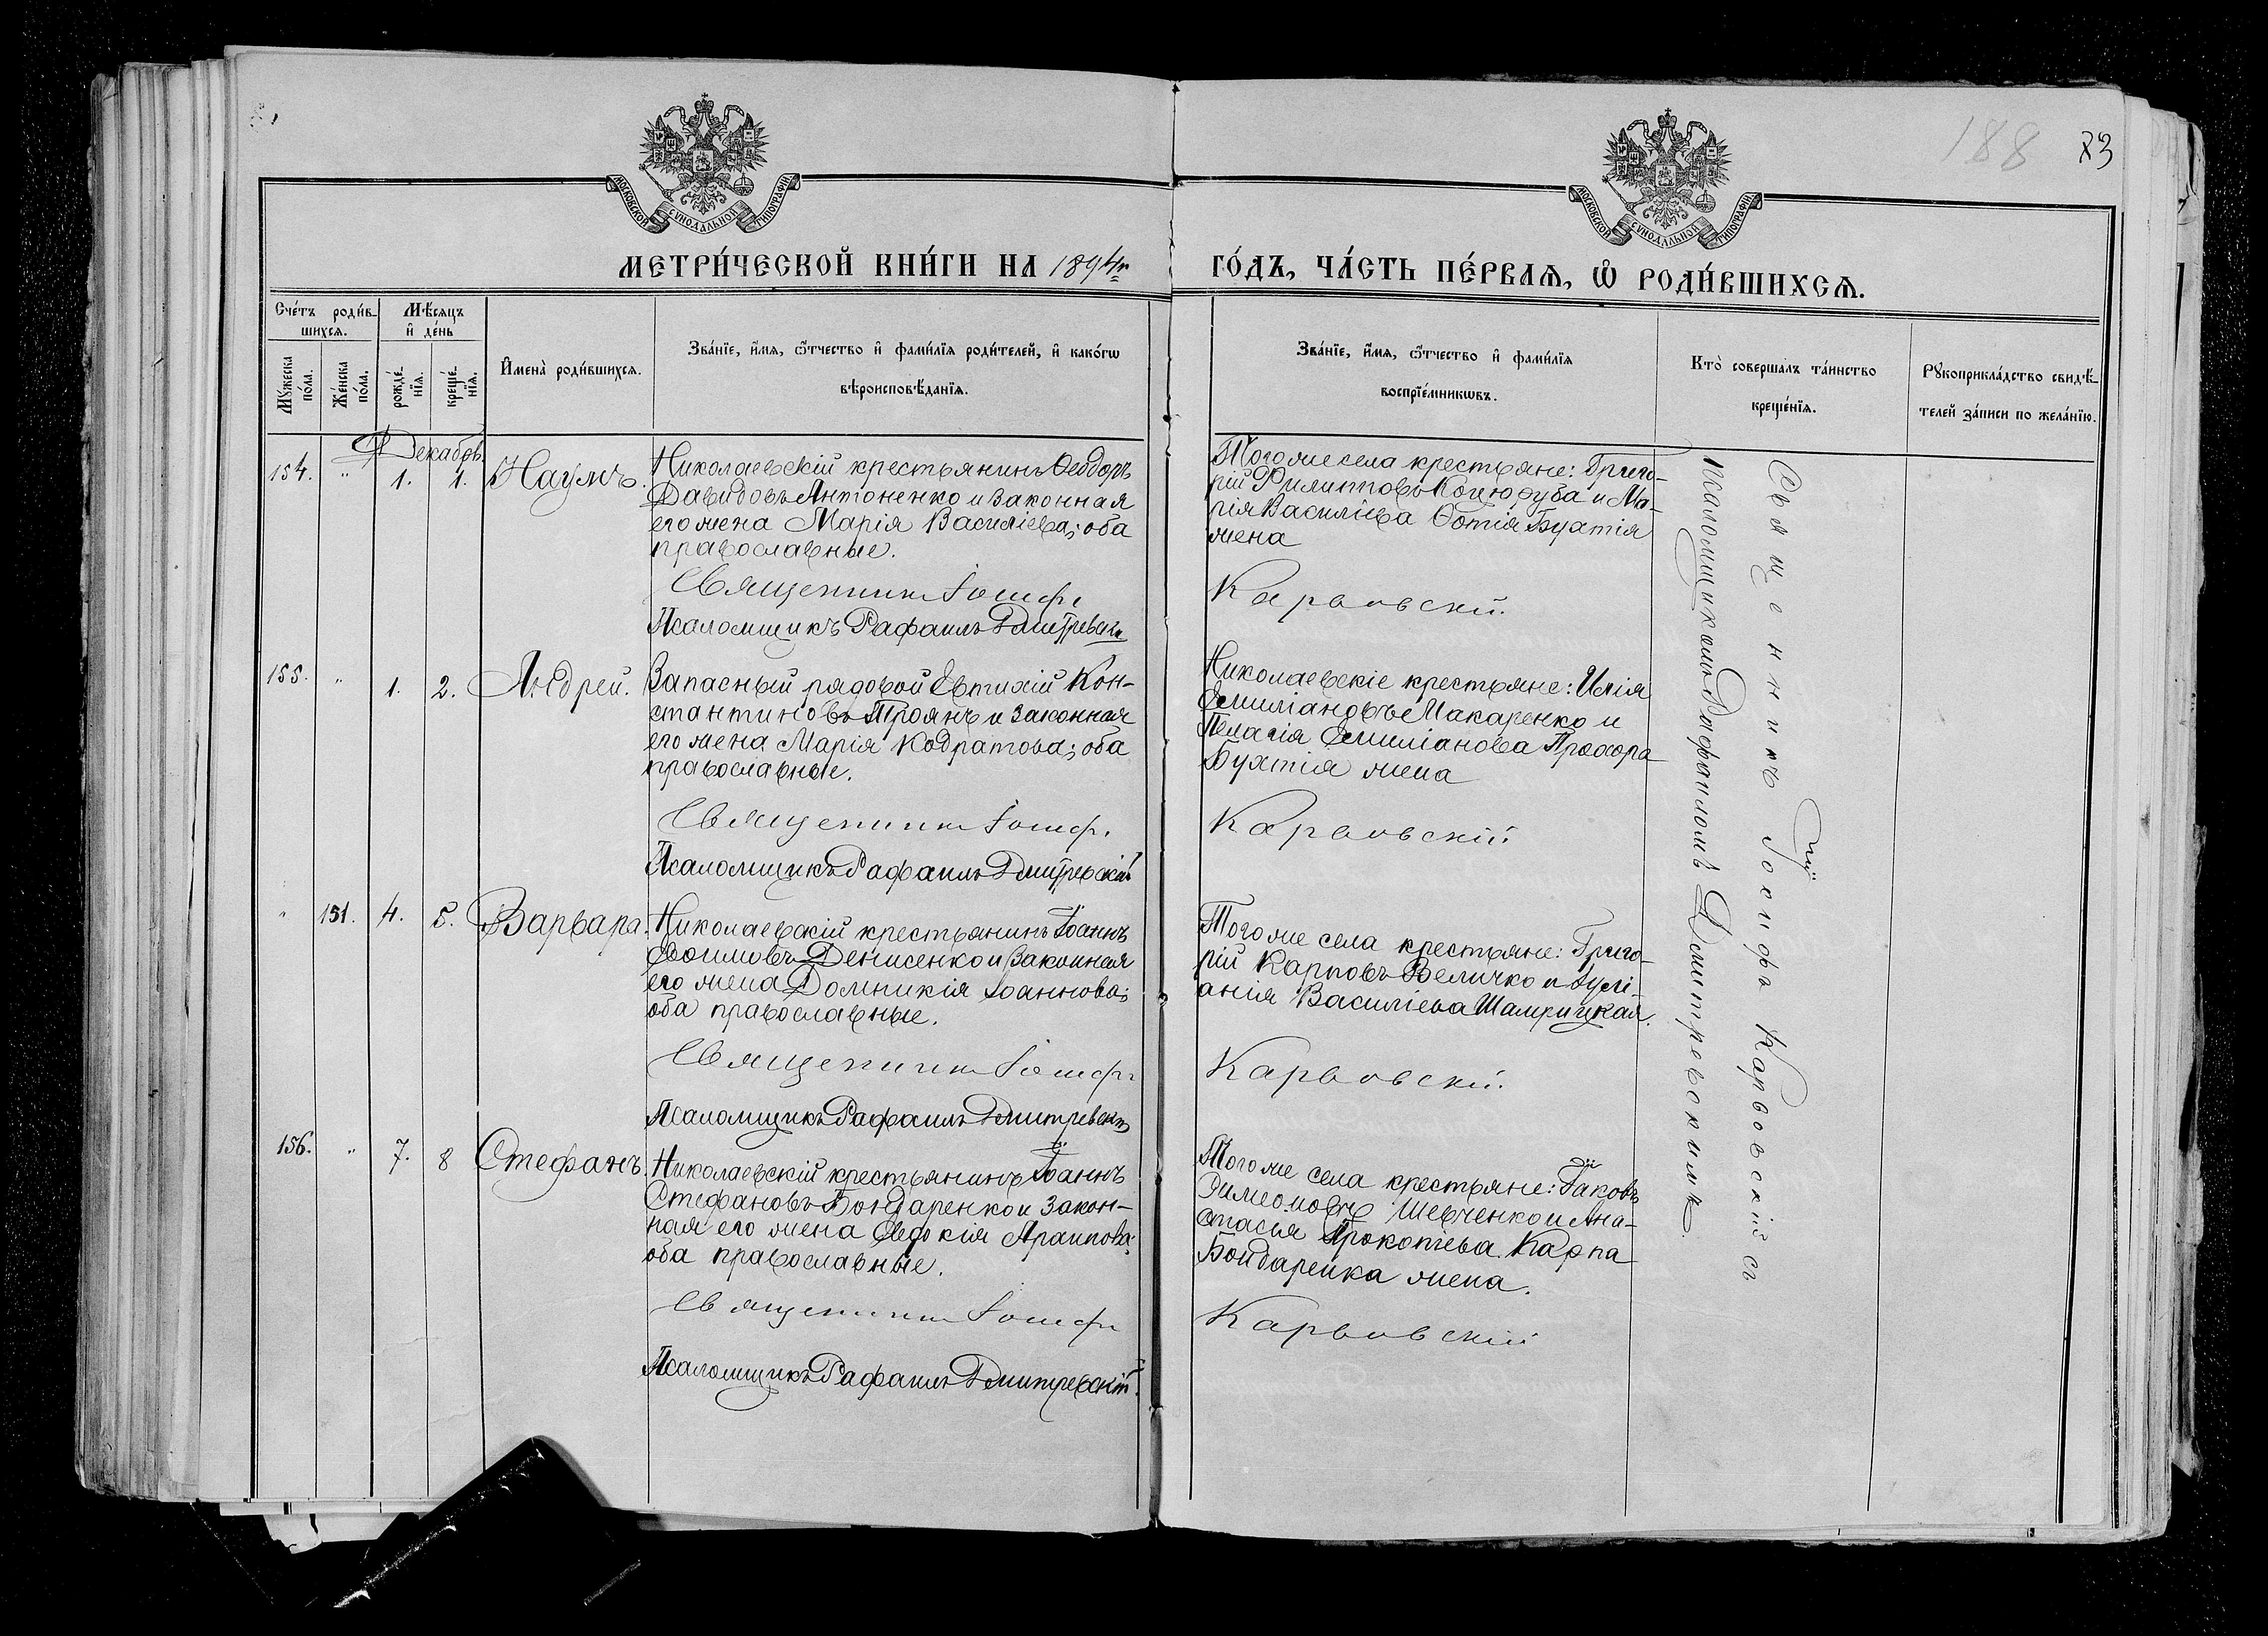 188 83
МОСКОВСКОЙ СѴНОДАЛЬНОЙ ТИПОГРАФІИ
МОСКОВСКОЙ СѴНОДАЛЬНОЙ ТИПОГРАФІИ
МЕТРИ́ЧЕСКОЙ КНИ́ГИ НА 1894й
ГО́ДЪ, ЧА́СТЬ ПЕ́РВАѦ, Ѡ҆ РОДИ́ВШИХСѦ.
Сче́тъ роди́в-
шихсѧ.
Мꙋ́жеска по́ла.
Же́нска по́ла.
Мѣ́сѧцъ
и҆ де́нь
рожде́-
нїѧ.
креще́-
нїѧ.
И҆мена̀ роди́вшихсѧ.
Зва́нїе, и҆́мѧ, ѻ҆́тчество и҆ фами́лїѧ роди́телей, и҆ како́гѡ
вѣроисповѣ́данїѧ.
Зва́нїе, и҆́мѧ, ѻ҆́тчество и҆ фами́лїѧ
воспрїе́мникѡвъ.
Кто̀ соверша́лъ та́инство
креще́нїѧ.
Рꙋкоприкла́дство свидѣ́-
телей за́писи по жела́нїю.
Декабрь
154. " 1. 1. Наумъ.
Николаевскій крестьянинъ Ѳеодоръ
Давидовъ Антоненко и законная
его жена Марія Василіева; оба
православные.
Священникъ Іосифъ
Псаломщикъ Рафаилъ Дмитревскій
Того же села крестьяне: Григо-
рій Филипповъ Коцюруба и Ма-
рія Василіева Фотія Бухтія
жена
Карвовскій.
155. " 1. 2. Андрей.
Запасный рядовой Евтихій Кон-
стантиновъ Троянъ и законная
его жена Марія Кодратова; оба
православные.
Священникъ Іосифъ
Псаломщикъ Рафаилъ Дмитревскій
Николаевскіе крестьяне: Илія
Емиліановъ Макаренко и
Пелагія Емиліанова Прохора
Бухтія жена
Карвовскій
" 151. 4. 5. Варвара.
Николаевскій крестьянинъ Іоаннъ
Денисенко и законная
его жена Домникія Іоаннова;
оба православные.
Священникъ Іосифъ
Псаломщикъ Рафаилъ Дмитревскій
Того же села крестьяне: Григо-
рій Карповъ Величко и Іулі-
анія Василіева
Карвовскій.
156. " 7. 8 Стефанъ.
Николаевскій крестьянинъ Іоаннъ
Стефановъ Бондаренко и закон-
ная его жена Евдокія
оба православные.
Священникъ Іосифъ
Псаломщикъ Рафаилъ Дмитревскій.
Того же села крестьяне: Іаковъ
Шевченко и Ана-
стасія Прокопіева Карпа
Бондаренка жена.
Карвовскій
Священникъ Іосифъ Карвовскій съ
псаломщикомъ Рафаиломъ Дмитревскимъ.